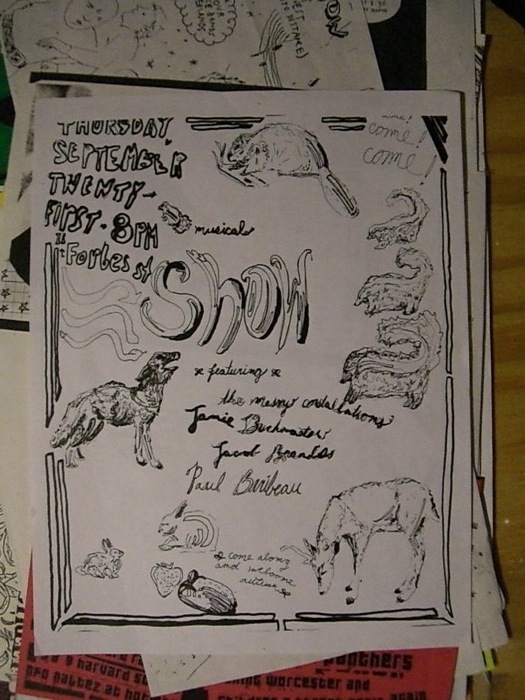 THURSDAY,
SEPTEMBER
TWENTY-
FIRST. 8PM
11 Forbes st
musical
SHOW
come!
come!
featuring
the messy constellations
Jamie Buckmaster
Jacob Brandes
Paul Baribeau
come along
and welcome
autumn
panthers
harvard
ing worcester and